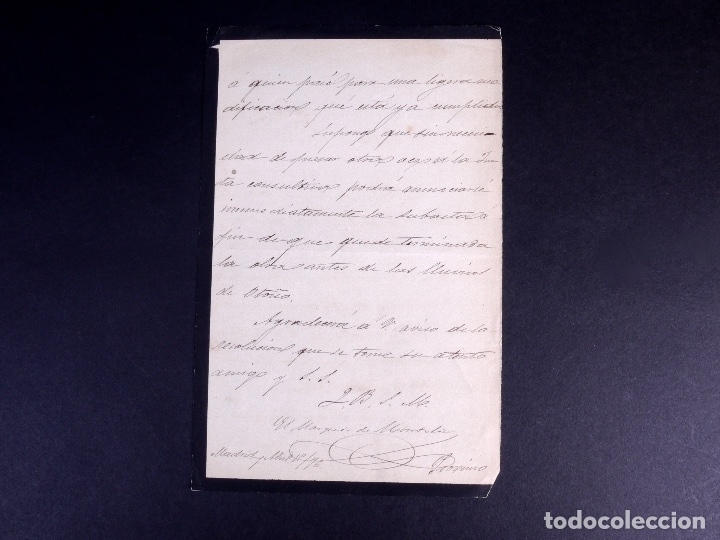 á quien pasó para una ligera mo
dificacion que está ya cumplida
Supongo que sin necesi
dad de pasar otra vez á la Jun
ta consultiva podrá anunciarse
inmediatamente la subasta á
fin de que quede terminada
la obra antes de las lluvias
de Otoño.
Agradeceré á V aviso de la
resolucion que se tome su atento
amigo y S. S.
Q. B. S. M.
El Marques de
Madrid
todocoleccion.net